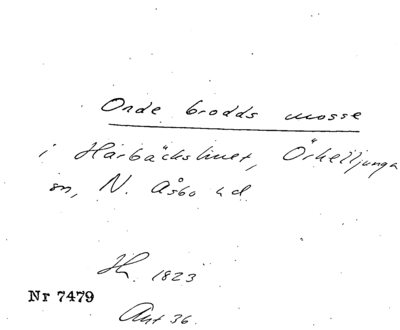 Onde brodds mosse
i Harbäckshuet, Örkelljunga
sn, N. Åsbo hd.
Hh. 1823
Nr 7479
Ant 36.